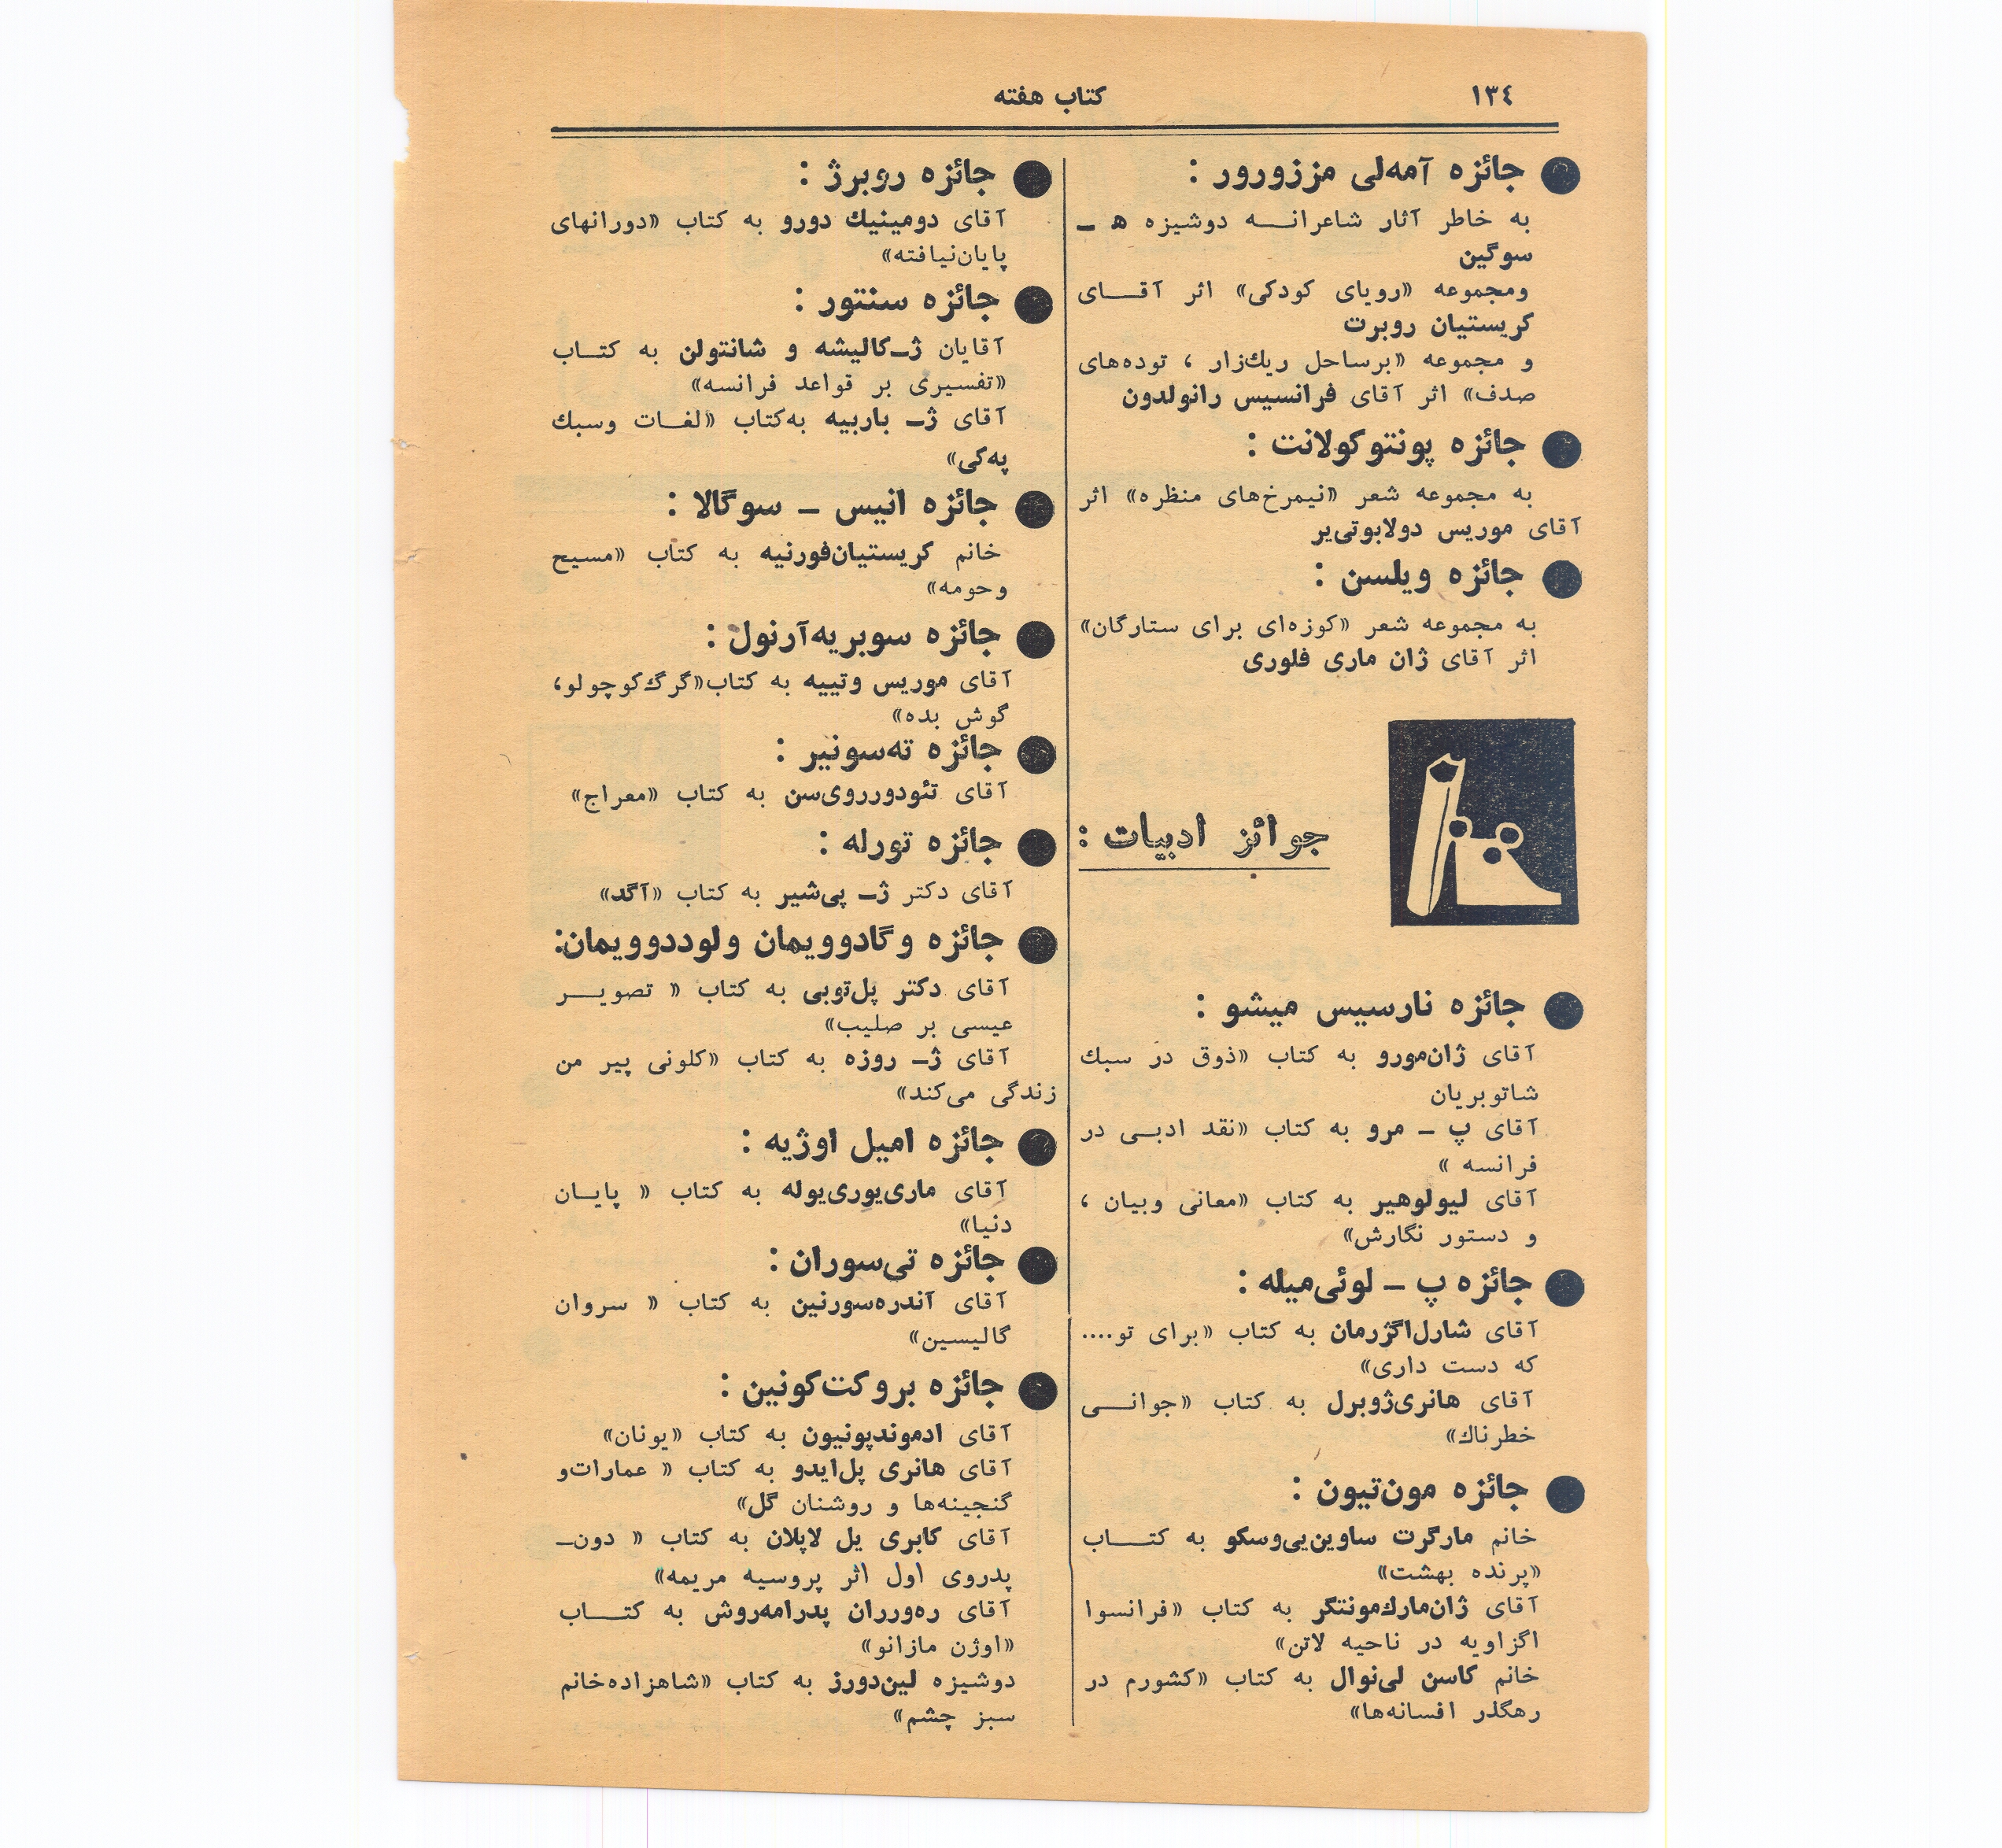 ۱۳٤
کتاب هفته
جائزه آمه‌لی مززورور :
به خاطر آثار شاعرانـــه دوشیزه ه ـ
سوگین
ومجموعه «رویای کودکی» اثر آقـــای
کریستیان روبرت
و مجموعه «برساحل ریك‌زار ، توده‌های
صدف» اثر آقای فرانسیس رانولدون
جائزه پونتوکولانت :
به مجموعه شعر «نیمرخ‌های منظره» اثر
آقای موریس دولابوتی‌یر
جائزه ویلسن :
به مجموعه شعر «کوزه‌ای برای ستارگان»
اثر آقای ژان ماری فلوری
جوائز ادبیات :
جائزه نارسیس میشو :
آقای ژان‌مورو به کتاب «ذوق در سبك
شاتوبریان
آقای پ ـ مرو به کتاب «نقد ادبــی در
فرانسه »
آقای لیولوهیر به کتاب «معانی وبیان ،
و دستور نگارش»
جائزه پ ـ لوئی‌میله :
آقای شارل‌اگژرمان به کتاب «برای تو....
که دست داری»
آقای هانری‌ژوبرل به کتاب «جوانـــی
خطرناك»
جائزه مون‌تیون :
خانم مارگرت ساوین‌یی‌وسکو به کتـــاب
«پرنده بهشت»
آقای ژان‌مارك‌مونتگر به کتاب «فرانسوا
اگزاویه در ناحیه لاتن»
خانم کاسن لی‌نوال به کتاب «کشورم در
رهگذر افسانه‌ها»
جائزه روبرژ :
آقای دومینیك دورو به کتاب «دورانهای
پایان‌نیافته»
جائزه سنتور :
آقایان ژـ‌کالیشه و شانتولن به کتــاب
«تفسیری بر قواعد فرانسه»
آقای ژـ باربیه به‌کتاب «لغــات وسبك
په‌کی»
جائزه انیس ـ سوگالا :
خانم کریستیان‌فورنیه به کتاب «مسیح
وحومه»
جائزه سوبریه‌آرنول :
آقای موریس وتییه به کتاب«گرگ‌کوچولو،
گوش بده»
جائزه ته‌سونیر :
آقای تئودورروی‌سن به کتاب «معراج»
جائزه تورله :
آقای دکتر ژـ پی‌شیر به کتاب «آگد»
جائزه وگادوویمان ولوددوویمان:
آقای دکتر پل‌توبی به کتاب « تصویــر
عیسی بر صلیب»
آقای ژـ روزه به کتاب «کلونی پیر من
زندگی می‌کند»
جائزه امیل اوژیه :
آقای ماری‌یوری‌یوله به کتاب « پایــان
دنیا»
جائزه تی‌سوران :
آقای آندره‌سورنین به کتاب « سروان
گالیسین»
جائزه بروکت‌کونین :
آقای ادموندپونیون به کتاب «یونان»
آقای هانری پل‌ایدو به کتاب « عمارات‌و
گنجینه‌ها و روشنان گل»
آقای کابری یل لاپلان به کتاب « دون‌ـ
پدروی اول اثر پروسیه مریمه»
آقای ره‌ورران پدرامه‌روش به کتـــاب
«اوژن مازانو»
دوشیزه لین‌دورز به کتاب «شاهزاده‌خانم
سبز چشم»